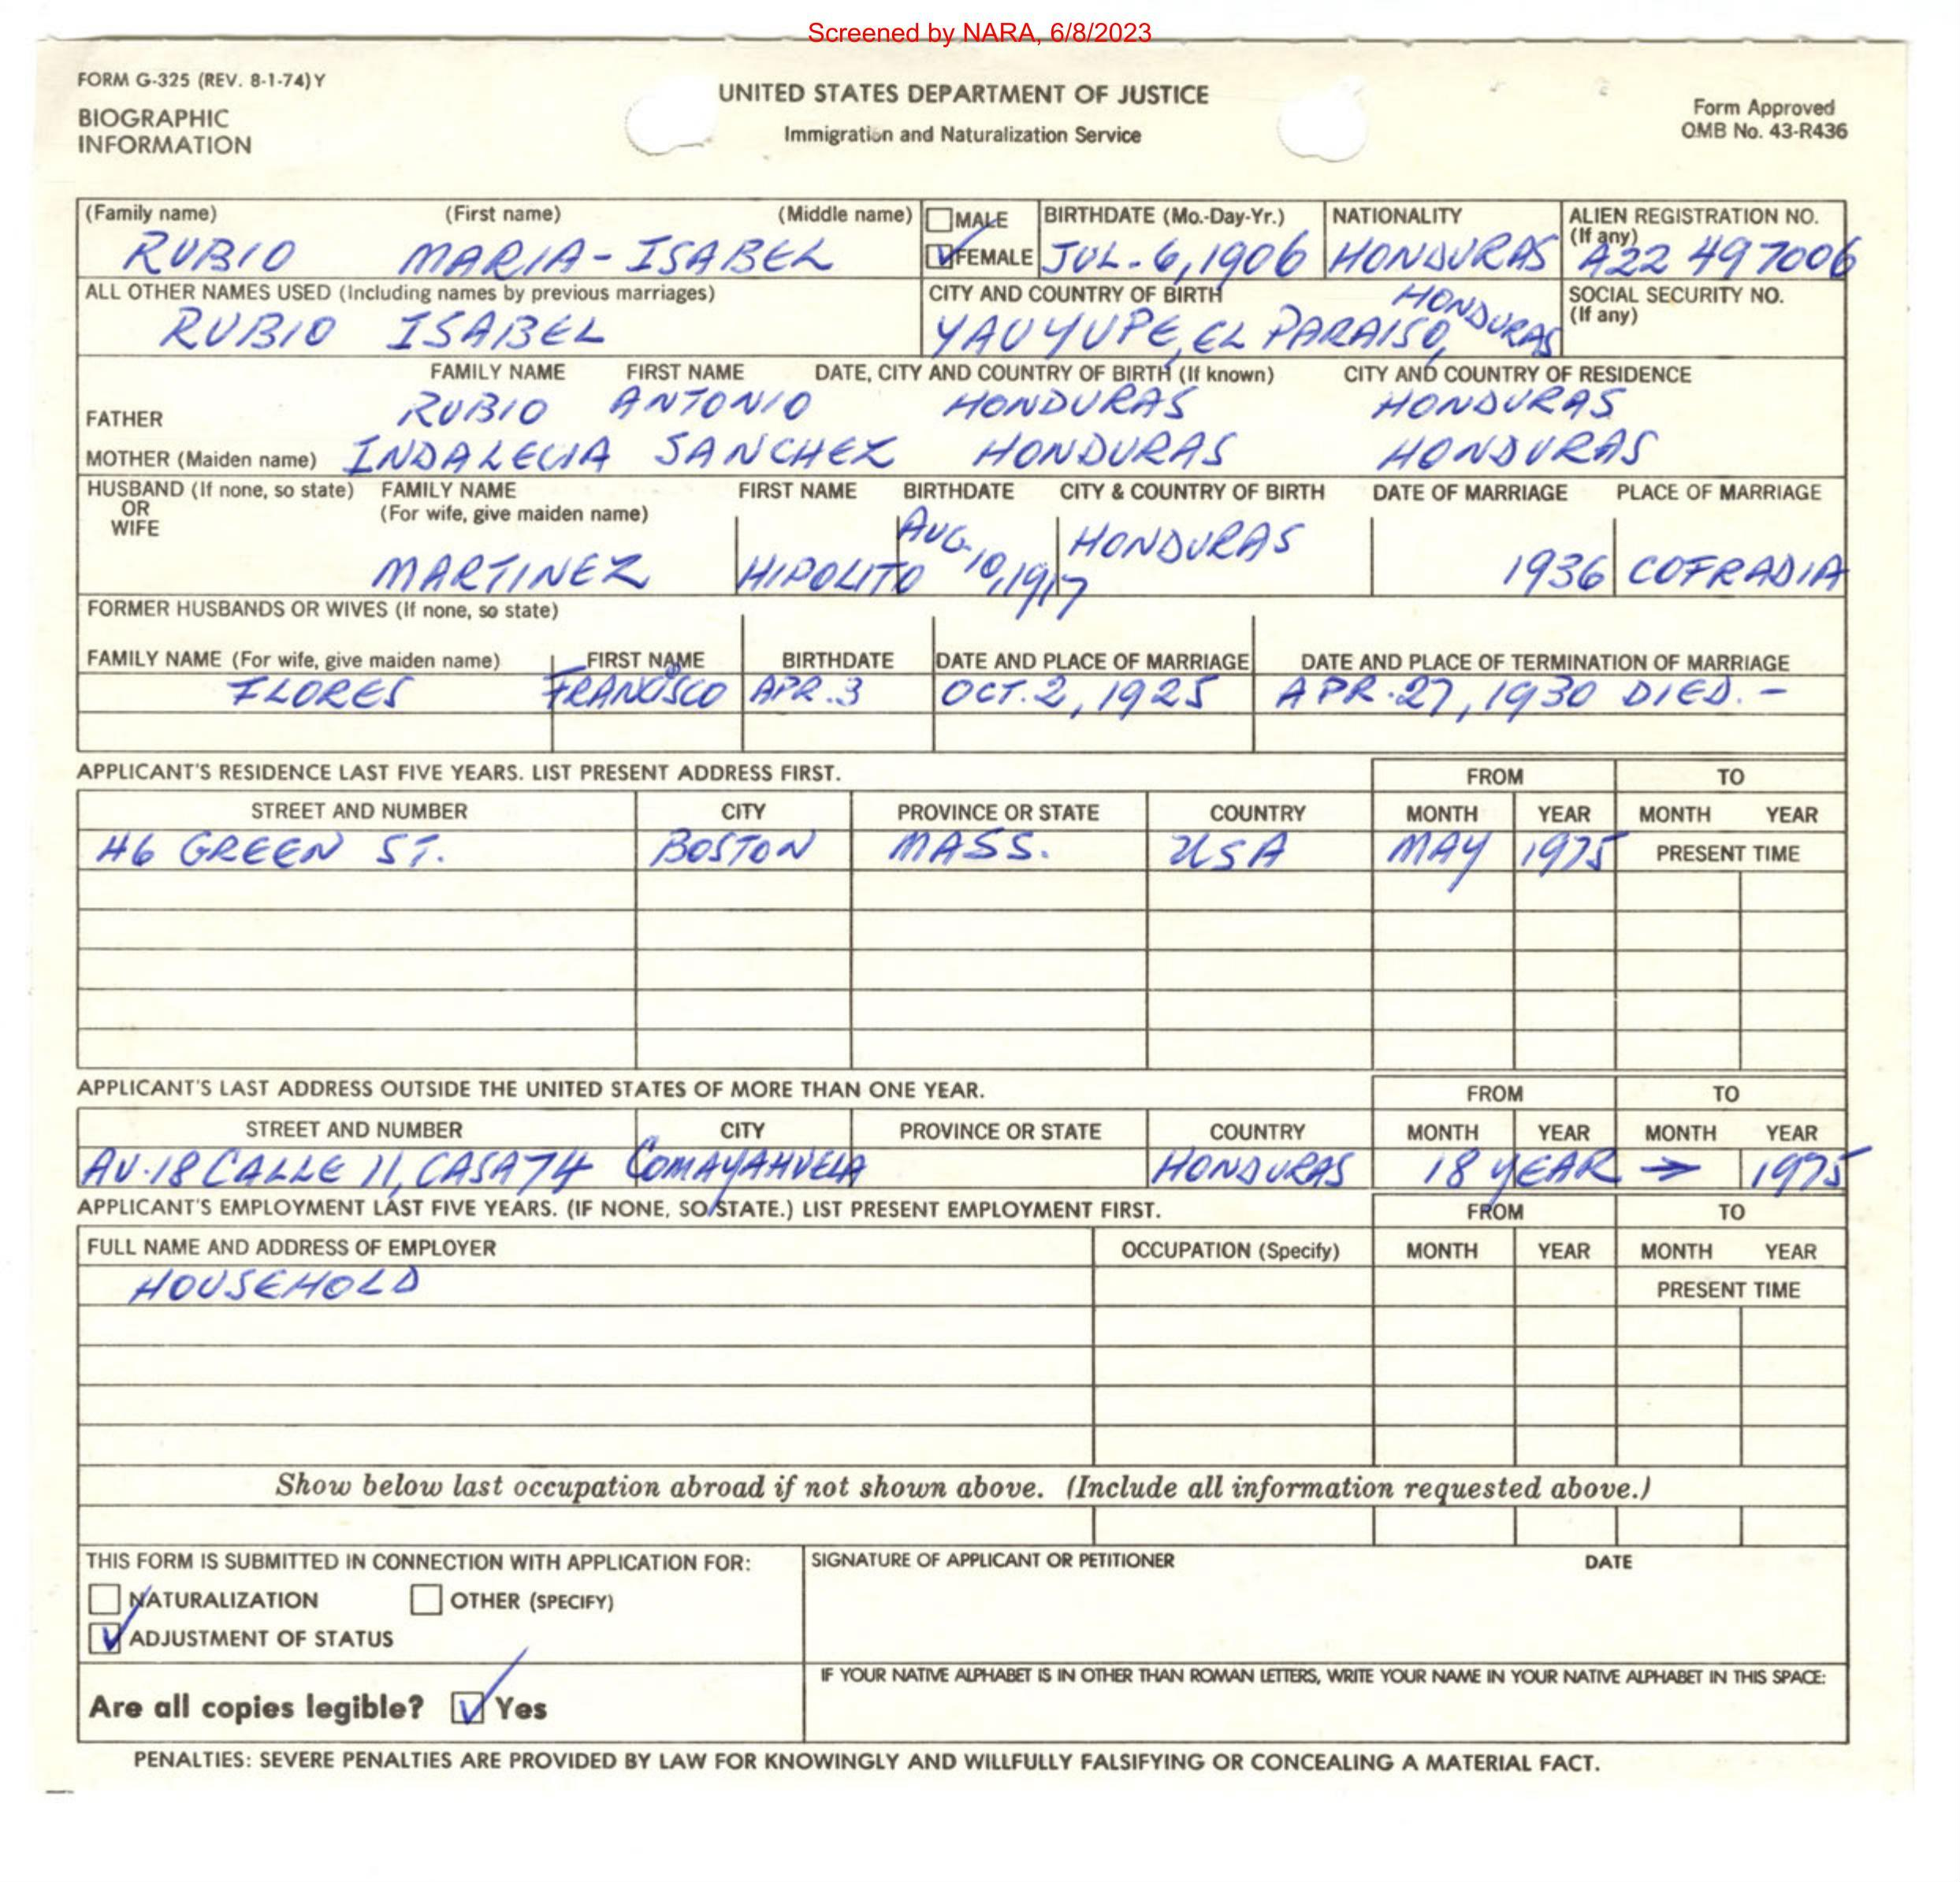 Screened by NARA, 6/8/2023
FORM G-325 (REV. 8-1-74) Y
UNITED STATES DEPARTMENT OF JUSTICE
Form Approved
BIOGRAPHIC
INFORMATION
Immigration and Naturalization Service
OMB No. 43-R436
(Family name) (First name) (Middle name) MALE BIRTHDATE (Mo.-Day-Yr.) NATIONALITY ALIEN REGISTRATION NO.
(If any)
RUBIO MARIA-ISABEL FEMALE JUL. 6, 1906 HONDURAS A22 497006
ALL OTHER NAMES USED (Including names by previous marriages) CITY AND COUNTRY OF BIRTH SOCIAL SECURITY NO.
(If any)
RUBIO ISABEL YAUYUPE, EL PARAISO, HONDURAS
FAMILY NAME FIRST NAME DATE, CITY AND COUNTRY OF BIRTH (If known) CITY AND COUNTRY OF RESIDENCE
FATHER RUBIO ANTONIO HONDURAS HONDURAS
MOTHER (Maiden name) INDALECIA SANCHEZ HONDURAS HONDURAS
HUSBAND (If none, so state) FAMILY NAME FIRST NAME BIRTHDATE CITY & COUNTRY OF BIRTH DATE OF MARRIAGE PLACE OF MARRIAGE
OR (For wife, give maiden name)
WIFE
MARTINEZ HIPOLITO AUG. 10, 1917 HONDURAS 1936 COFRADIA
FORMER HUSBANDS OR WIVES (If none, so state)
FAMILY NAME (For wife, give maiden name) FIRST NAME BIRTHDATE DATE AND PLACE OF MARRIAGE DATE AND PLACE OF TERMINATION OF MARRIAGE
FLORES FRANCISCO APR. 3 OCT. 2, 1925 APR. 27, 1930 DIED. -
APPLICANT'S RESIDENCE LAST FIVE YEARS. LIST PRESENT ADDRESS FIRST. FROM TO
STREET AND NUMBER CITY PROVINCE OR STATE COUNTRY MONTH YEAR MONTH YEAR
46 GREEN ST. BOSTON MASS. USA MAY 1975 PRESENT TIME
APPLICANT'S LAST ADDRESS OUTSIDE THE UNITED STATES OF MORE THAN ONE YEAR. FROM TO
STREET AND NUMBER CITY PROVINCE OR STATE COUNTRY MONTH YEAR MONTH YEAR
AV. 18 CALLE 11, CASA 74 COMAYAHUELA HONDURAS 18 YEAR → 1975
APPLICANT'S EMPLOYMENT LAST FIVE YEARS. (IF NONE, SO STATE.) LIST PRESENT EMPLOYMENT FIRST. FROM TO
FULL NAME AND ADDRESS OF EMPLOYER OCCUPATION (Specify) MONTH YEAR MONTH YEAR
HOUSEHOLD PRESENT TIME
Show below last occupation abroad if not shown above. (Include all information requested above.)
THIS FORM IS SUBMITTED IN CONNECTION WITH APPLICATION FOR: SIGNATURE OF APPLICANT OR PETITIONER DATE
NATURALIZATION OTHER (SPECIFY)
ADJUSTMENT OF STATUS
IF YOUR NATIVE ALPHABET IS IN OTHER THAN ROMAN LETTERS, WRITE YOUR NAME IN YOUR NATIVE ALPHABET IN THIS SPACE:
Are all copies legible? Yes
PENALTIES: SEVERE PENALTIES ARE PROVIDED BY LAW FOR KNOWINGLY AND WILLFULLY FALSIFYING OR CONCEALING A MATERIAL FACT.